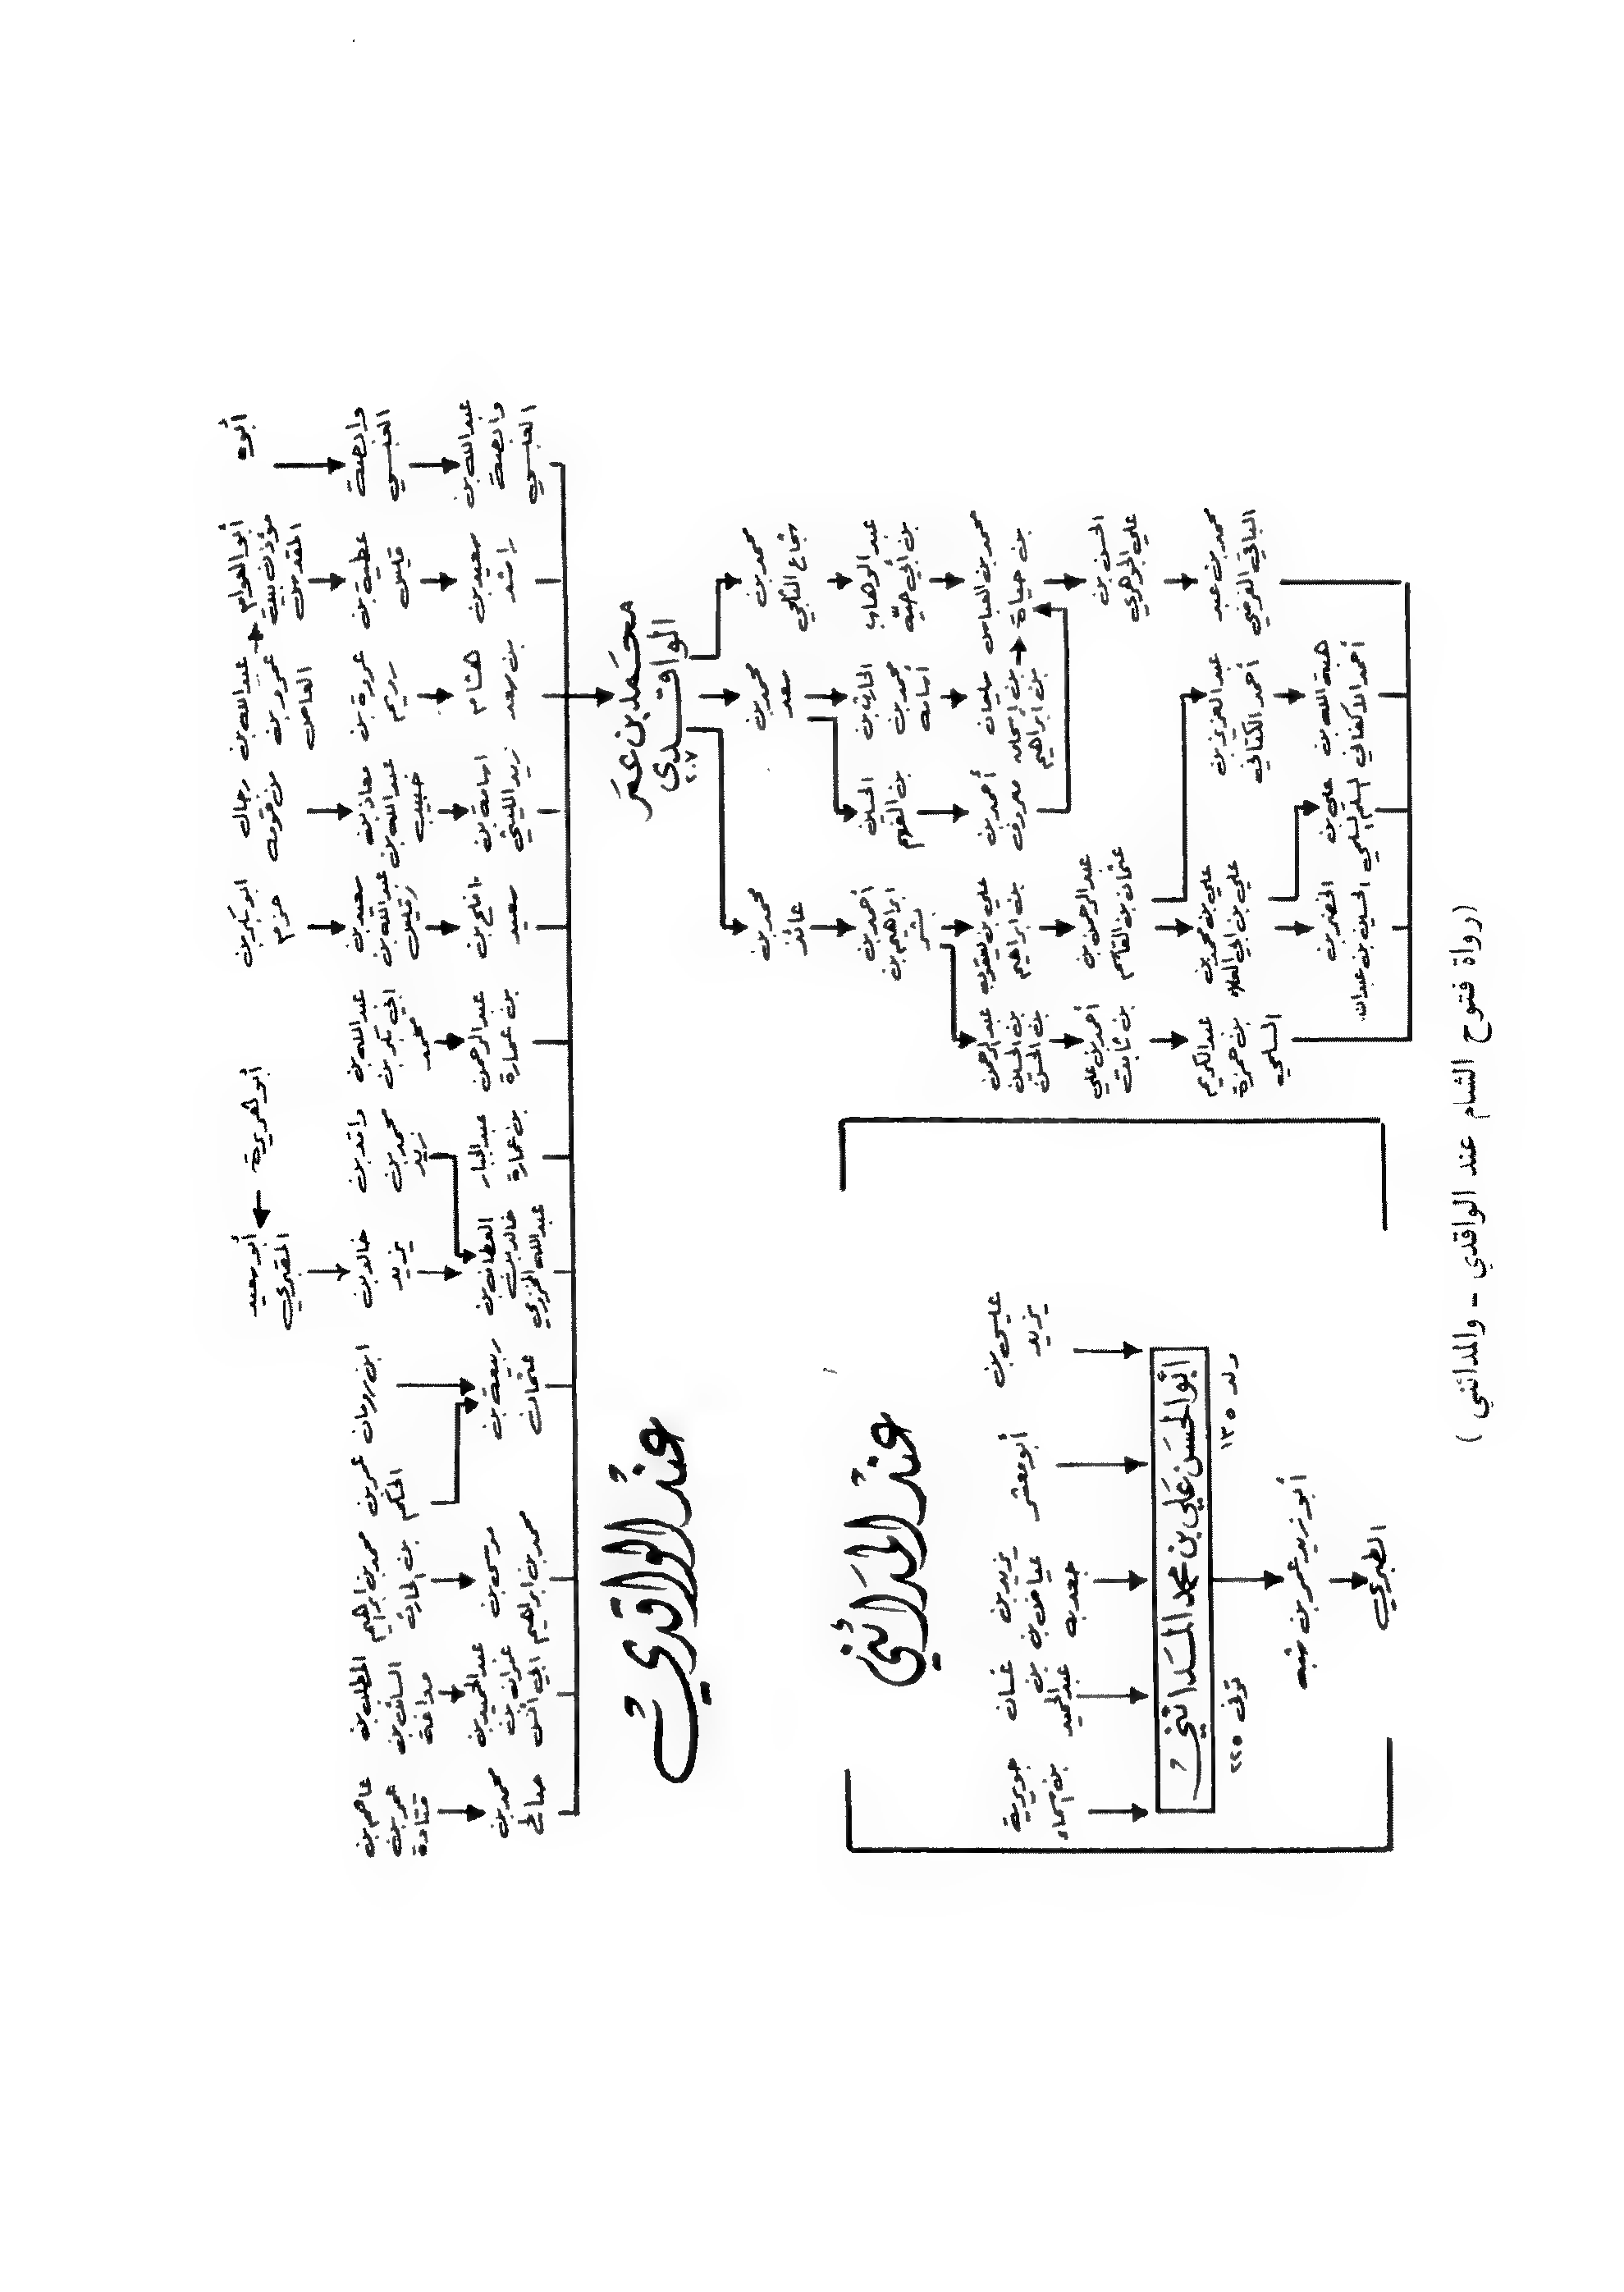 أبوه
وابصة
العبسي
عبدالله بن
وابصة
العبسي
أبو العوام
مؤذن بيت
المقدس
عطية بن
قيس
سعيد بن
راشد
عبدالله بن
عمرو بن
العاص
عروة بن
رويم
هشام
بن سعد
رجال
من قومه
معاذ بن
عبدالله بن
حبيب
اسامة بن
زيد الليثي
ابو بكر بن
حزم
سعيد بن
عبدالله بن
افلح بن
سعيد
عبدالله بن
ابي بكر بن
محمد
عبدالرحمن
بن عمارة
أبو هريرة
واقد بن
محمد بن
زيد
عبدالجبار
بن عمارة
أبو سعيد
المقبري
خالد بن
يزيد
العطاف بن
خالد بن
عبدالله
ابن رومان
ربيعة بن
عثمان
عمر بن
الحكم
محمد بن ابراهيم
بن الحارث
موسى بن
محمد بن ابراهيم
المطلب بن
السائب بن
وداعة
عبدالحميد بن
عمران بن
ابي أنس
عاصم بن
عمر بن
قتادة
محمد بن
صالح
محمد بن عمر
الواقدي
٢٠٧
عند الواقدي
محمد بن
شجاع الثلجي
عبدالوهاب
بن أبي حية
محمد بن العباس
بن حياة
الحسن بن
علي الجوهري
محمد بن عبد
الباقي الفرضي
محمد بن
سعد
الحارث بن
محمد بن
أسامة
سليمان
بن إسحاق
بن ابراهيم
الحسين
بن الفهم
أحمد بن
معروف
عبدالعزيز بن
أحمد الكتاني
هبة الله بن
أحمد الاكفاني
علي بن
محمد بن
عائذ
أحمد بن
ابراهيم بن
بشر
علي بن يعقوب
بن ابراهيم
عبدالرحمن بن
عثمان بن القاسم
علي بن محمد بن
علي بن ابي العلاء
الخضر بن
الحسين بن عبدالله
عبدالرحمن
بن الحسين
بن الحسن
أحمد بن علي
بن ثابت
عبدالكريم
بن حمزة
السلمي
عند المدائني
عيسى بن
يزيد
أبو معشر
يزيد بن
عياض بن
جعدبه
غسان
بن
عبدالحميد
جويرية
بن اسماء
أبو الحسن علي بن محمد المدائني
ولد ١٣٥
توفي ٢٢٥
أبو زيد عمر بن شبه
الطبري
(رواة فتوح الشام عند الواقدي - والمدائني)